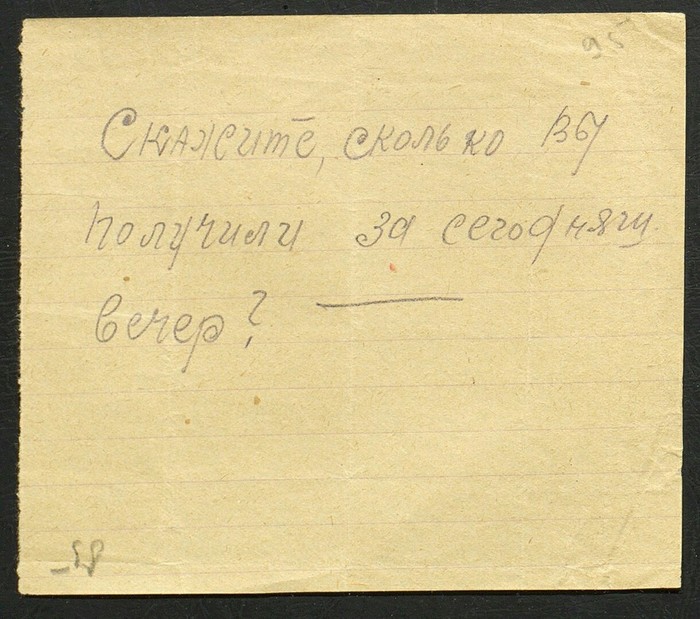 95
Скажите, сколько Вы
получили за сегодняш.
вечер?